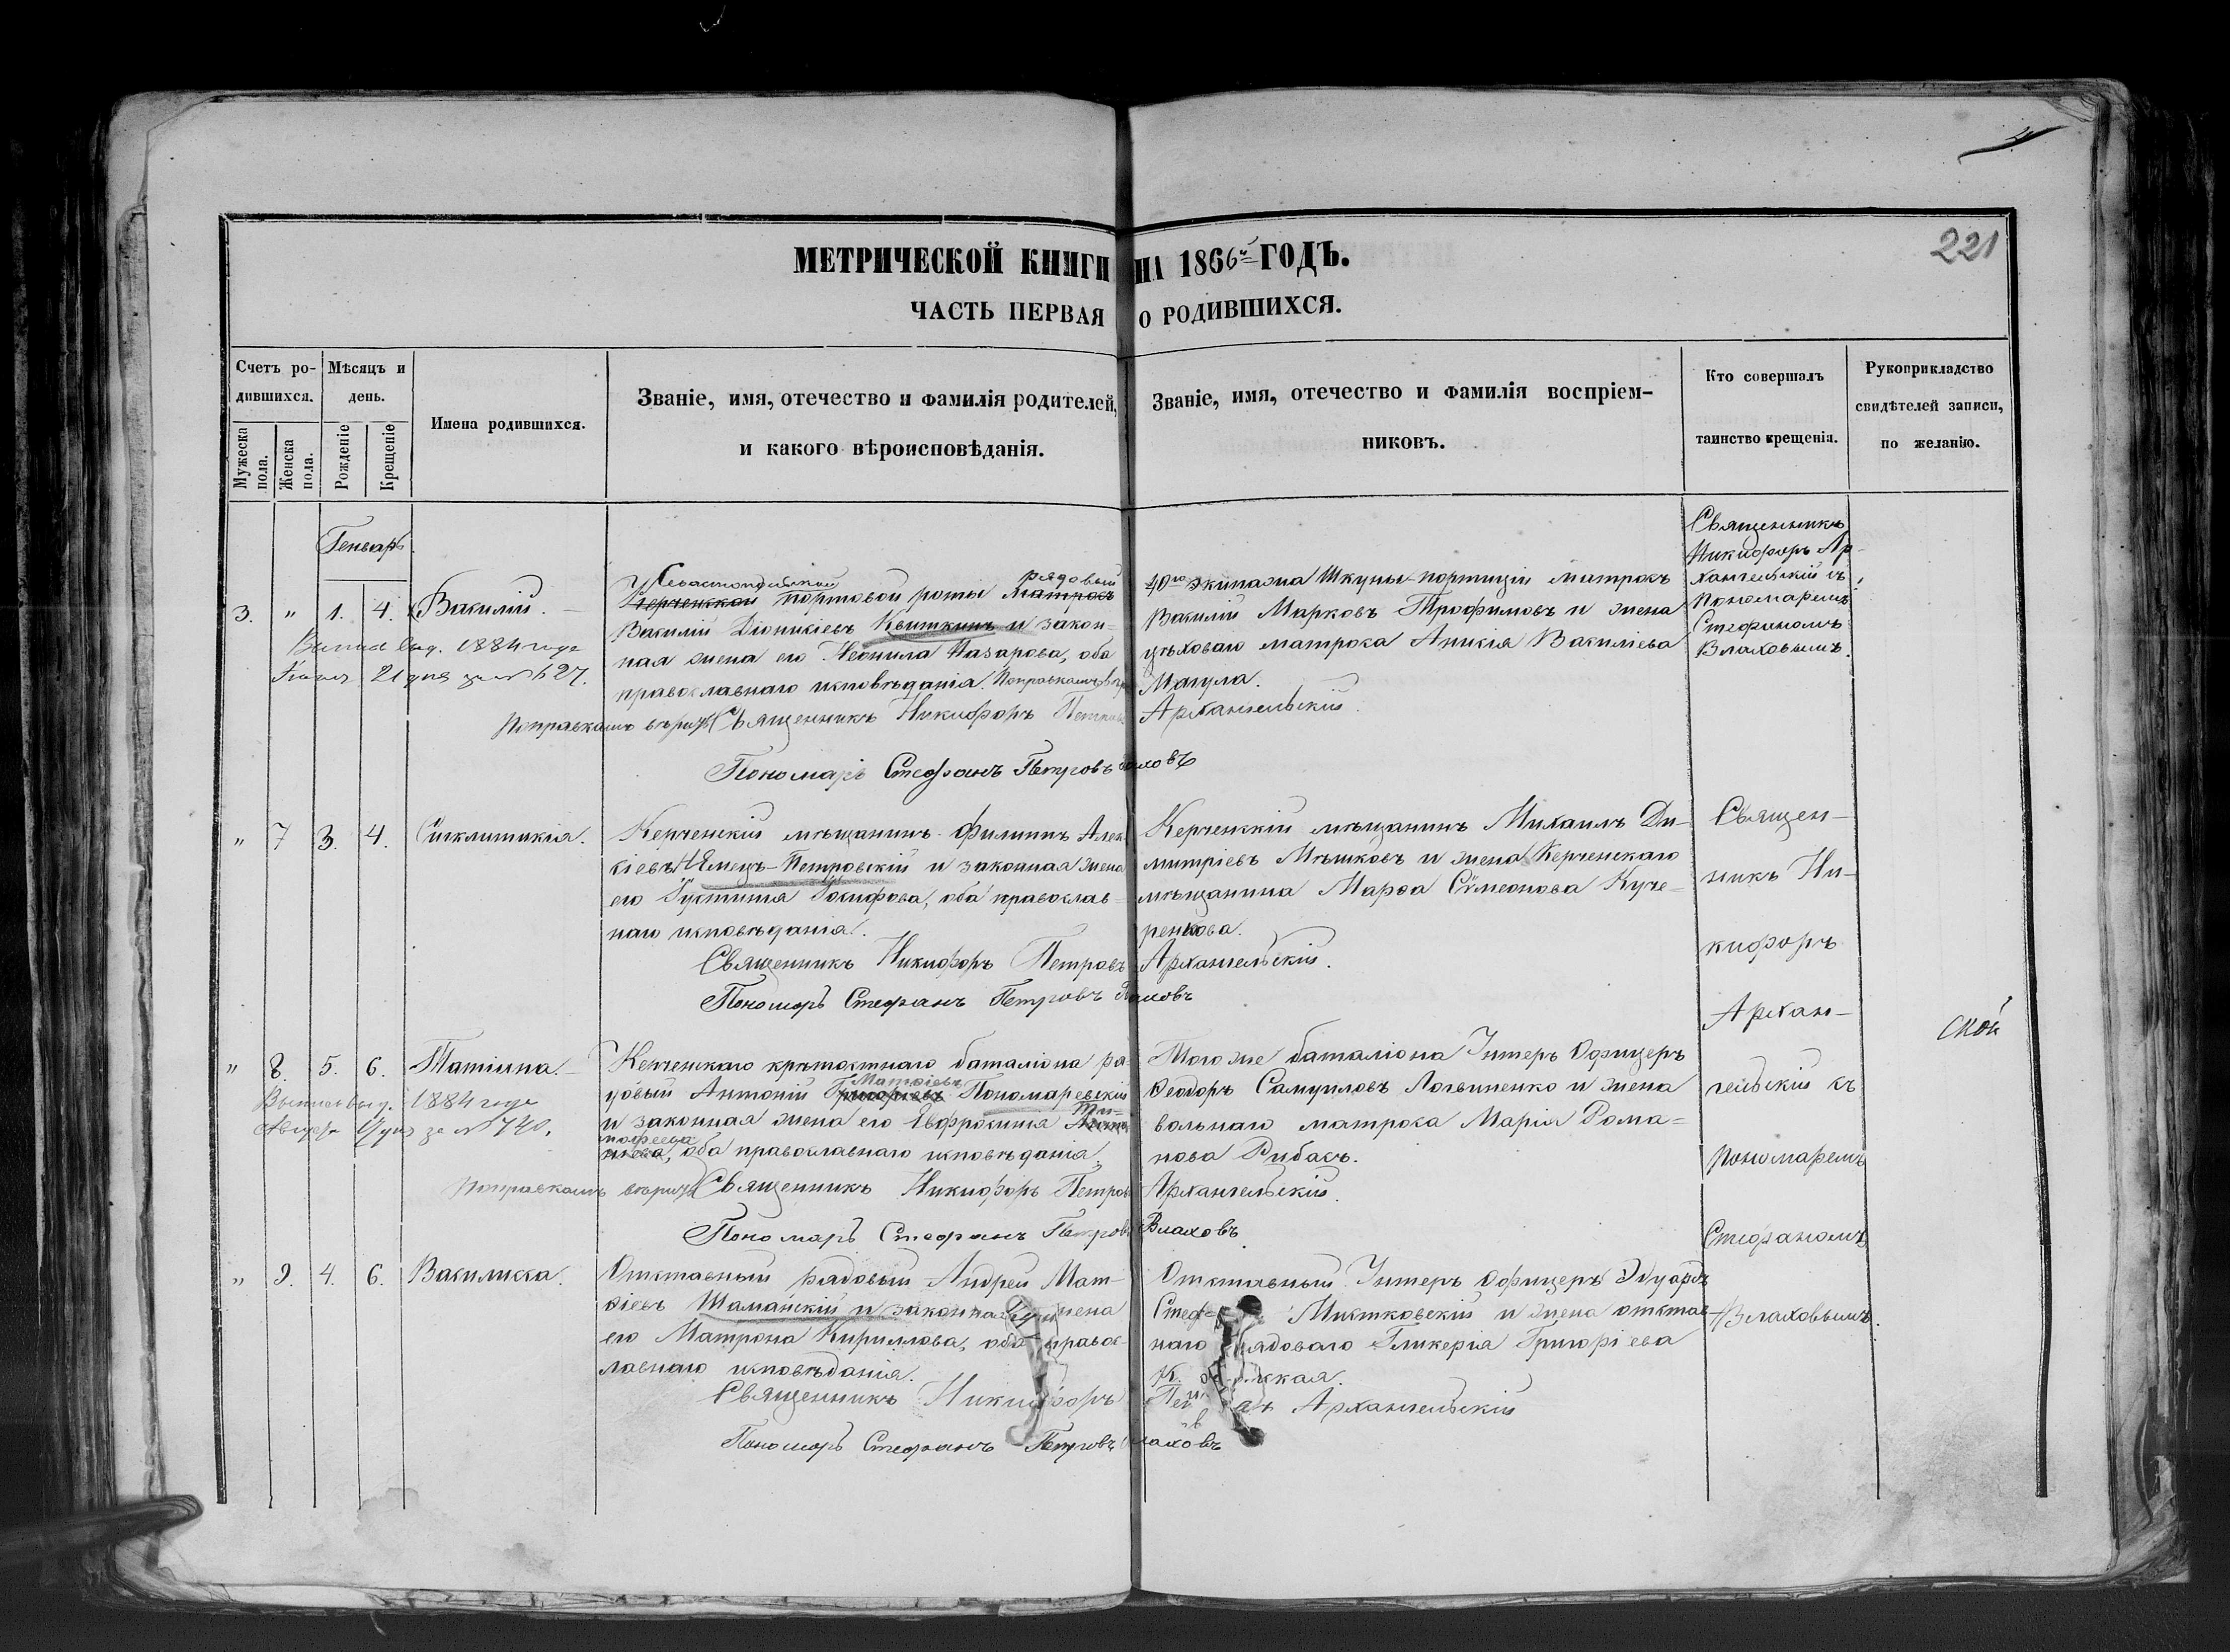 221
МЕТРИЧЕСКОЙ КНИГИ НА 1866й ГОДЪ.
ЧАСТЬ ПЕРВАЯ О РОДИВШИХСЯ.
Счетъ ро-
дившихся.
Мужеска пола.
Женска пола.
Мѣсяцъ и
день.
Рожденіе
Крещеніе
Имена родившихся.
Званіе, имя, отечество и фамилія родителей,
и какого вѣроисповѣданія.
Званіе, имя, отечество и фамилія воспріем-
никовъ.
Кто совершалъ
таинство крещенія.
Рукоприкладство
свидѣтелей записи,
по желанію.
Генварь
3. " 1. 4. Василій.
1884 года
21 дня за № 627.
Севастопольской рядовый
Керченской портовой роты матросъ
Василій Діонисіевъ Квиткинъ и закон-
ная жена его Неонила Назарова, оба
православнаго исповѣданія.
Священникъ Никифоръ Петровъ Архангельскій.
Пономарь Стефанъ Петровъ Влаховъ
40го экипажа Шкуны портиціи матросъ
Василій Марковъ Трофимовъ и жена
цѣховаго матроса Анисія Василіева
Магула.
Священникъ
Никифоръ Ар-
хангельскій съ
Пономаремъ
Стефаномъ
Влаховымъ.
" 7 3. 4. Сигклитикія.
Керченскій мѣщанинъ Филиппъ Алек
сіевъ Немецъ-Петровскій и законная жена
его Іустинія Іосифова, оба православ-
наго исповѣданія.
Священникъ Никифоръ Петровъ Архангельскій.
Пономарь Стефанъ Петровъ Влаховъ
Керченскій мѣщанинъ Михаилъ Ди-
митріевъ Мѣшковъ и жена Керченскаго
мѣщанина Марѳа Сѵмеонова Куче-
ренкова.
Священ-
никъ Ни-
кифоръ
Архан-
гельскій съ
пономаремъ
Стефаномъ
Влаховымъ.
" 8. 5. 6. Татіана.
1884 года
за № 740.
Керченскаго крѣпостнаго баталіона ря-
Матѳіевъ
довый Антоній Григоріевъ Пономаревскій
и законная жена его Евфросинія Ти-
моѳеева, оба православнаго исповѣданія.
Священникъ Никифоръ Петровъ Архангельскій.
Пономарь Стефанъ Петровъ Влаховъ
Того же баталіона Унтеръ Офицеръ
Ѳеодоръ Самуиловъ Логвиненко и жена
вольнаго матроса Марія Рома-
нова Рибакъ.
" 9. 4. 6. Василисса.
Отставный рядовый Андрей Мат-
ѳіевъ Шаманскій и законная жена
его Матрона Кириллова, оба правос-
лавнаго исповѣданія.
Священникъ Никифоръ Петровъ Архангельскій
Пономарь Стефанъ Петровъ Влаховъ
Отставный Унтеръ Офицеръ Эдуардъ
Мистковскій и жена отстав-
наго рядоваго Гликерія Григоріева